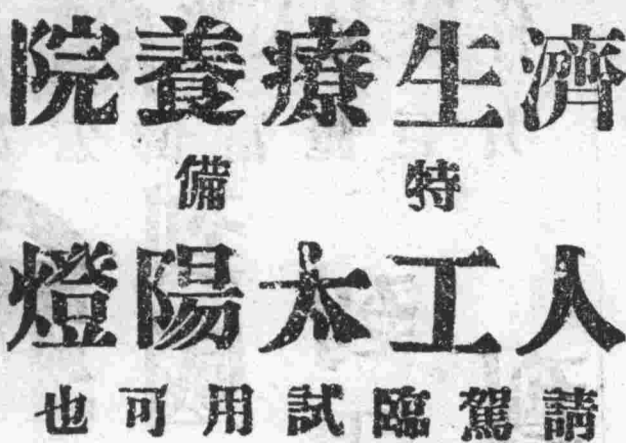 濟生療養院
特備
人工太陽燈
請駕臨試用可也